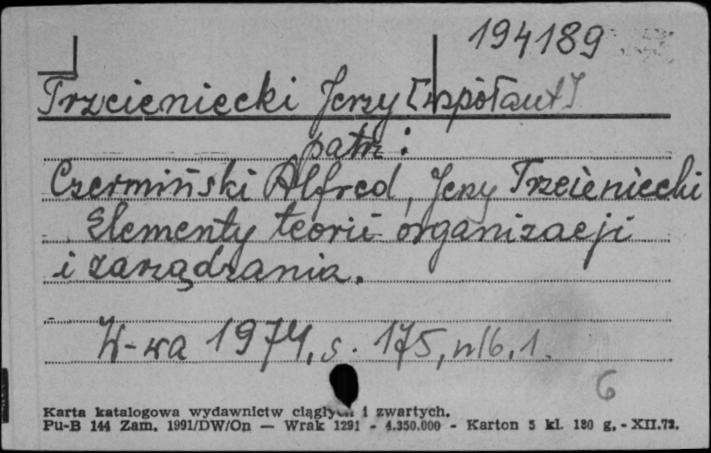 194189
Trzcieniecki Jerzy [współaut]
patrz:
Czermiński Alfred, Jerzy Trzcieniecki
Elementy teorii organizacji
i zarządzania.
W-wa 1974, s. 175, nlb. 1.
6
Karta katalogowa wydawnictw ciągłych i zwartych.
Pu-B 144 Zam. 1991/DW/On — Wrak 1291 - 4.350.000 - Karton 5 kl. 180 g. - XII.72.